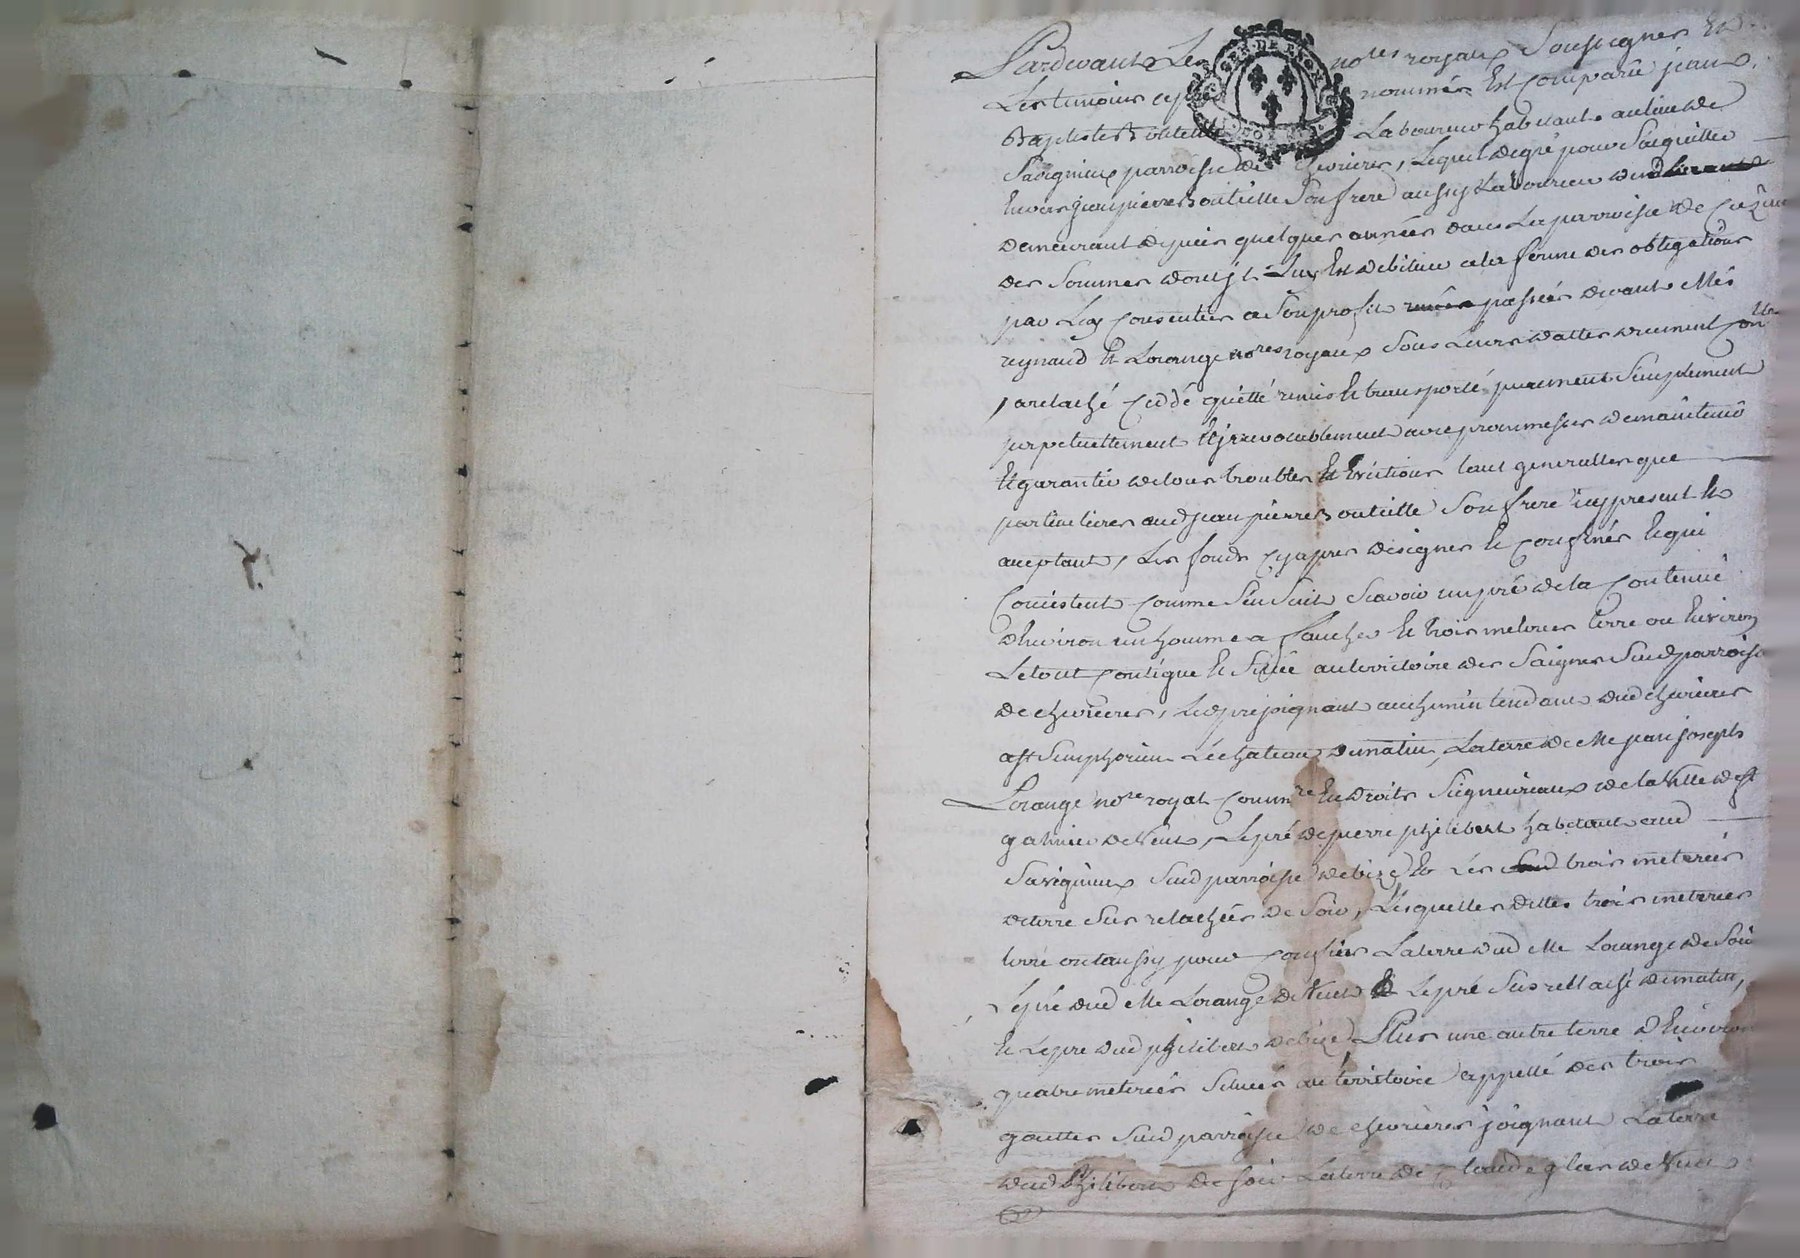 Pardevant Les nores royaux soussignes Et
Les temoins cy nommés Est comparu jean
Baptiste Bouteille Laboureur habitant au lieu de
Savignieux parroisse de chevrieres, Lequel de gré pour s'acquitter
Envers jean pierre Bouteille son frere aussy Laboureur
demeurant depuis quelques années dans La parroisse de
des sommes dont jl Luy Est debiteur a la forme des obligations
par Luy consenties a son profit passées devant Mes
reynaud Et Lorange nores royaux sous Leurs dattes dument
, a relaché ceddé quitté remis Et transporté purement simplement
perpetuellement Et jrrevocablement avec promesses de maintenir
Et garantie de tous troubles Et Evictions tant generalles que
particulieres aud jean pierre Bouteille son frere jcy present Et
aceptant, Les fonds cyapres designes Et confinés Et qui
consistent comme s'en suit scavoir un pré de la contenue
d'Environ un homme a faucher Et trois meterées terre ou Environ
Le tout contigue Et situé au territoire des saignes sud parroisse
de chevrieres, Led pré joignant au chemin tendant dud chevrieres
a st simphorien Le chateau de matin, La terre de Me jean joseph
Lorange nore royal commre En droits seigneuriaux de la Ville de st
galmier de Vent, Le pré de pierre philibert habitant aud
Savignieux sud parroisse de bize, Et Les trois meterées
de terre sus relachées de soir, Lesquelles dittes trois meterées
terre ont aussy pour confins La terre dud Me Lorange de soir
Le pré dud Me Lorange de Vent Et Le pré sus rellaché de matin,
Et Le pre dud philibert de bize, Plus une autre terre d'Environ
quatre meterées située au territoire appellé des trois
gouttes sud parroisse de chevrieres joignant La terre
dud philibert de soir La terre de claude de Vent